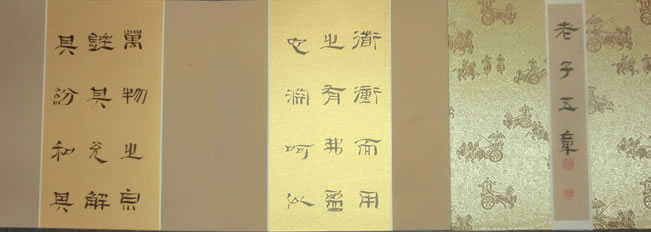 老子五章
道衝而用
之有弗盈
也淵呵似
萬物之宗
銼其兌解
其紛和其